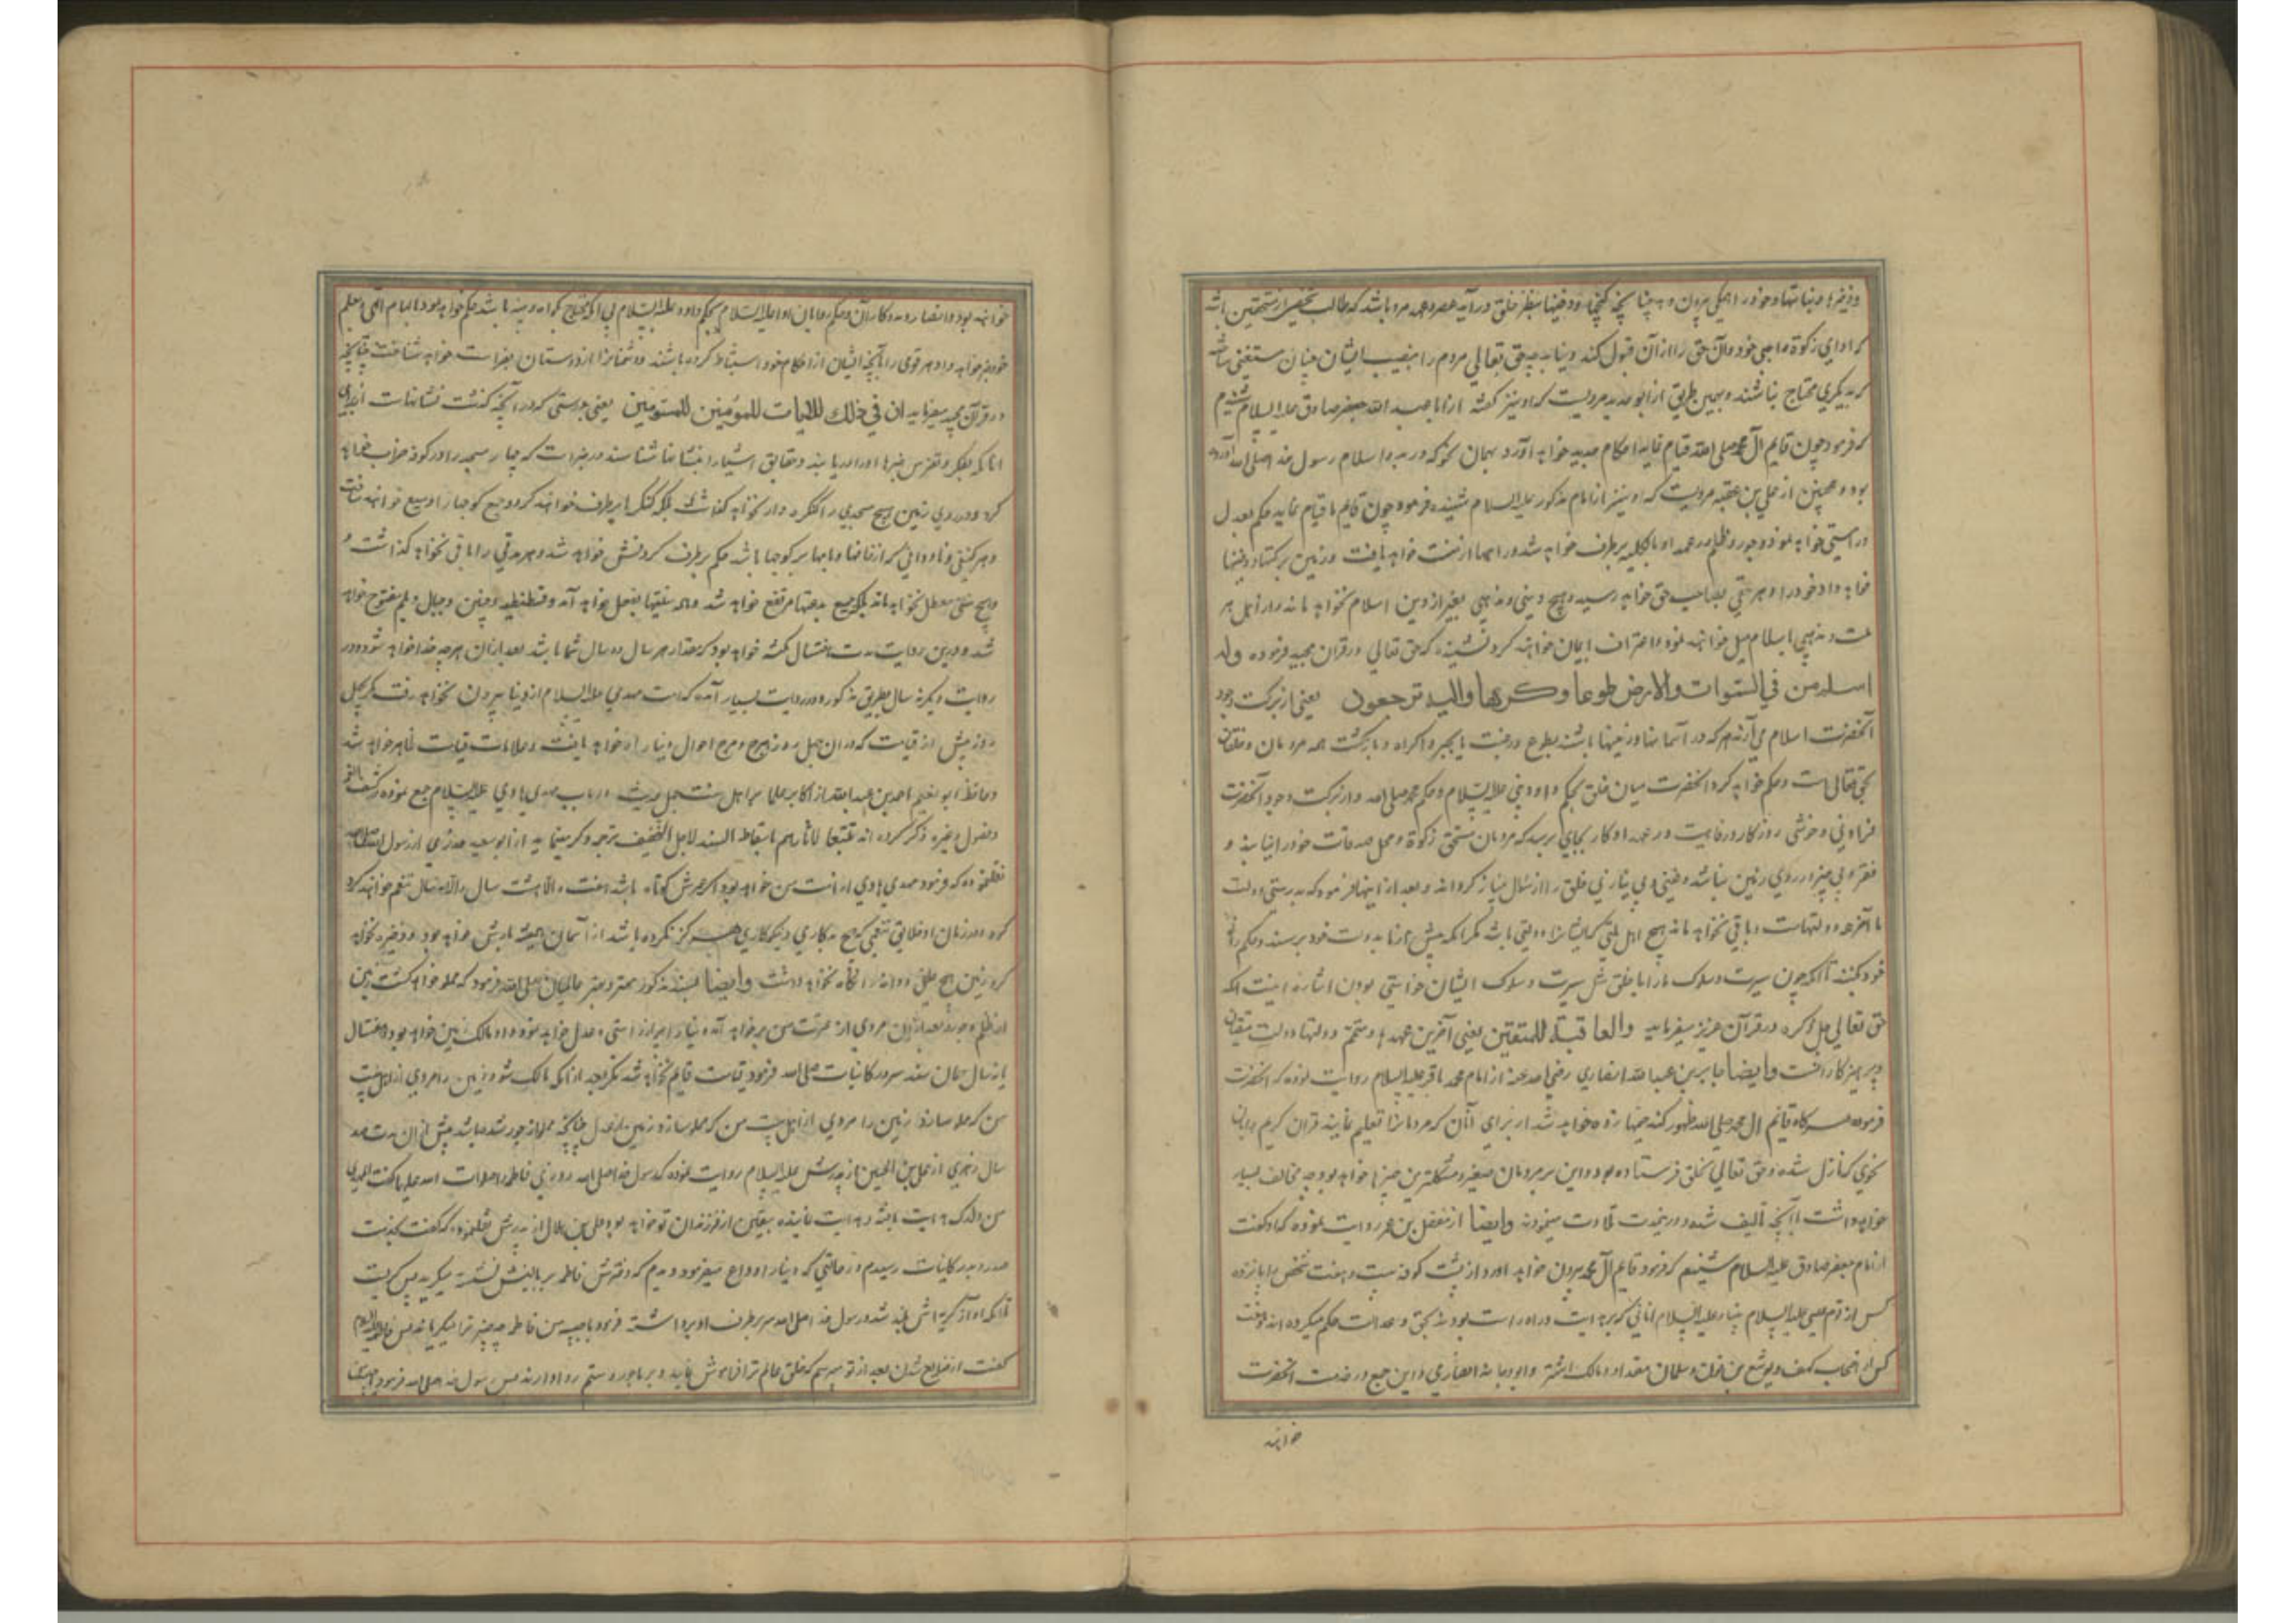 و ذخیرها و نباتها و خود را همکی بیرون دهد چنانچه کنجها و دفینها بنظر خلق درآید عصر و عهد مردم باشد که طالب شخصی از مستحقین باشد
که ادای زکوة واجبی خود و آن حق را از آن قبول کند و نیابد چه حق تعالی مردم را بنصیب ایشان چنان مستغنی ساخته باشد
که بدیکری محتاج نباشند و بهمین طریق از ابو خدیجه مرویست که او نیز کفته از ابا عبد الله جعفر صادق علیه السلام شنیدم
که فرمود چون قایم آل محمد صلی الله قیام نماید احکام جدید خواهد آورد بهمان نحو که در بدو اسلام رسول خدا صلی الله آورده
بود و همچنین از علی بن عقبه مرویست که او نیز از امام مذکور علیه السلام شنیده فرمود چون قایم ما قیام نماید حکم بعدل
و راستی خواهد نمود و جور و ظلم در عهد او بالکلیه برطرف خواهد شد و راهها امنیت خواهد یافت و زمین برکتها و دفینها
خواهد داد خود را و هر حقی بصاحب حق خواهد رسید و هیچ دینی و مذهبی بغیر از دین اسلام نخواهد ماند و از اهل هر
ملت و مذهبی باسلام میل خواهند نمود و اعتراف بایمان خواهند کرد نشنیده که حق تعالی در قران مجید فرموده وله
اسلم من في السموات والارض طوعا وكرها واليه ترجعون یعنی از برکت وجود
آنحضرت اسلام می آرند هر که در آسمانها و زمینها باشند بطوع و رغبت یا بجبر و اکراه و بازکشت همه مردمان و خلقان
بحق تعالی است و حکم خواهد کرد آنحضرت میان خلق بحکم داود نبی علیه السلام و حکم محمد صلی الله و از برکت وجود آنحضرت
فراوانی و خوشی روزکار و رفاهیت در عهد او کار بجایی برسد که مردمان مستحق زکوة و محل صدقات خود را نیابند و
فقر و بی چیزی در روی زمین نباشد و غنی و بی نیازی خلق را از سؤال بی نیاز کرداند و بعد از اینها فرمود که بدرستی دولت
ما آخر همه دولتهاست و باقی نخواهد ماند هیچ اهل بیتی که ایشانرا دولتی باشد مکر آنکه پیش از ما بدولت خود برسند و حکم رانی
خود بکنند تا آنکه چون سیرت و سلوک ما را با خلق مثل سیرت و سلوک ایشان خواستی بودن اشارت اینست آنکه
حق تعالی جل ذکره در قرآن عزیز میفرماید والعاقبة للمتقين یعنی آخرین عهدها و تتمه دولتها دولت متقیان
و پرهیزکارانست وایضا جابر بن عبد الله انصاری رضی الله عنه از امام محمد باقر علیه السلام روایت نموده که آنحضرت
فرموده هرکاه قائم آل محمد صلی الله ظهور کند خیمها زده خواهد شد از برای آنان که مردمانرا تعلیم نمایند قران کریم را بدان
نحوی که نازل شده و حق تعالی بخلق فرستاده بود و این بر مردمان صغیر و مشکلترین چیزها خواهد بود چه مخالف بسیار
خواهد داشت با آنچه تالیف شده و در نحدت تلاوت مینمودند وایضا از مفضل بن عمر روایت نموده که او کفت
از امام جعفر صادق علیه السلام شنیدم که فرمود قایم آل محمد بیرون خواهد آورد از پشت کوفه بیست و هفت شخص را پانزده
کس از قوم موسی علیه السلام آنانی که بهدایت در راه راست بودند بحق و عدالت حکم میکرده اند و هفت
کس از اصحاب کهف و یوشع بن نون و سلمان و مقداد و مالک اشتر و ابو دجانه انصاری و این جمع در خدمت آنحضرت
خواهند
خواهند بود و انصار و مددکاران و حکم رمایان او علیه السلام بحکم داود علیه السلام بی آنکه محتاج بکواه و بینه باشد حکم خواهد نمود بالهام الهی و بعلم
خود خبر خواهد داد هر قومی را بآنچه ایشان از احکام خود استنباط کرده باشند و دشمنانرا از دوستان بفراست خواهد شناخت چنانچه
در قرآن مجید میفرماید ان في ذلك لآيات للمؤمنين للمتوسمين یعنی بدرستی که در آنچه کذشت نشانهاست از برای
آنانکه بفکر و تفرس چیزها را دریابند و حقایق اشیا را بنشانها شناسند و در خبر است که چهار مسجد را در کوفه خراب خواهد
کرد و در روی زمین هیچ مسجدی را کنکره دار نخواهد کذاشت بلکه کنکرها برطرف خواهند کرد و جمیع کوچها را وسیع خواهند ساخت
و هر کنیفی و ناودانی که از خانها و بامها بر کوچها باشد حکم برطرف کردنش خواهد شد و هر بدعتی را باقی نخواهد کذاشت و
هیچ سنتی معطل نخواهد ماند بلکه جمیع بدعتها مرتفع خواهد شد و همه سنتها بفعل خواهد آمد و قسطنطنیه و چین و جبال دیلم مفتوح خواهد
شد و درین روایت مدت هفت سال مکث خواهد بود که مقدار هر سال ده سال شما باشد بعد از آن هر چه خدا خواهد شود و در
روایت دیکر نه سال بطریق مذکور و در روایت بسیار آمده که امت مهدی علیه السلام از دنیا بیرون نخواهد رفت مکر چهل
روز پیش از قیامت که در آن چهل روز هرج و مرج احوال دنیا راه خواهد یافت و علامات قیامت ظاهر خواهد شد
و حافظ ابو نعیم احمد بن عبد الله از اکابر علمای اهل سنت چهل حدیث در باب مهدی هادی علیه السلام جمع نموده و در کشف الغمه
و فصول و غیره ذکر کرده اند تتبعا لآثارهم باسقاط السند لاجل التخفیف ترجمه و کر مینماید از ابو سعید خدری از رسول الله
نقل نموده که فرمود مهدی هادی از امت من خواهد بود اکر عمرش کوتاه باشد هفت والا هشت سال والا نه سال تنعم خواهند کرد
در زمان او خلایق تنعمی که هیچ بدکاری و نیکوکاری هرکز نکرده باشد از آسمان همیشه بارش خواهد بود و ذخیره نخواهد
کرد زمین هیچ چیز و دانه را نکاه نخواهد داشت وایضا بسند مذکور مهتر و بهتر عالمیان صلی الله فرمود که مملو خواهد کشت زمین
از ظلم و جور بعد از آن مردی از عترت من برخواهد آمد دنیا را پر از راستی و عدل خواهد نمود و او مالک زمین خواهد بود هفت سال
یا نه سال بهمان سند سرور کائنات صلی الله فرمود قیامت قایم نخواهد شد مکر بعد از آنکه مالک شود زمین را مردی از اهل بیت
من که مملو سازد زمین را مردی از اهل بیت من که مملو سازد زمین از عدل چنانچه مملو از جور شده باشد پیش از آن مدت صد
سال زهری از علی بن الحسین از پدرش علیه السلام روایت نموده که رسول خدا صلی الله روزی فاطمه را صلوات الله علیها کفت المهدی
من ولدک هدایت یافته و هدایت نماینده بیقین از فرزندان تو خواهد بود و علی بن هلال از پدرش نقل نموده که کفت بخدمت
صدر و بدر کائنات رسیدم در حالتی که دنیا را وداع میفرمود دیدم که دخترش فاطمه بر بالینش نشسته میکرید پس کریست
تا آنکه آواز کریه اش بلند شد و رسول خدا صلی الله سر بطرف او برداشته فرمود یا حبیبه من فاطمه چه چیز ترا میکریاند پس فاطمه علیها السلام
کفت از ضایع شدن بعد از تو میترسم که خلق عالم ترا فراموش نمایند و بر ما جور و ستم روا دارند پس رسول خدا صلی الله فرمود